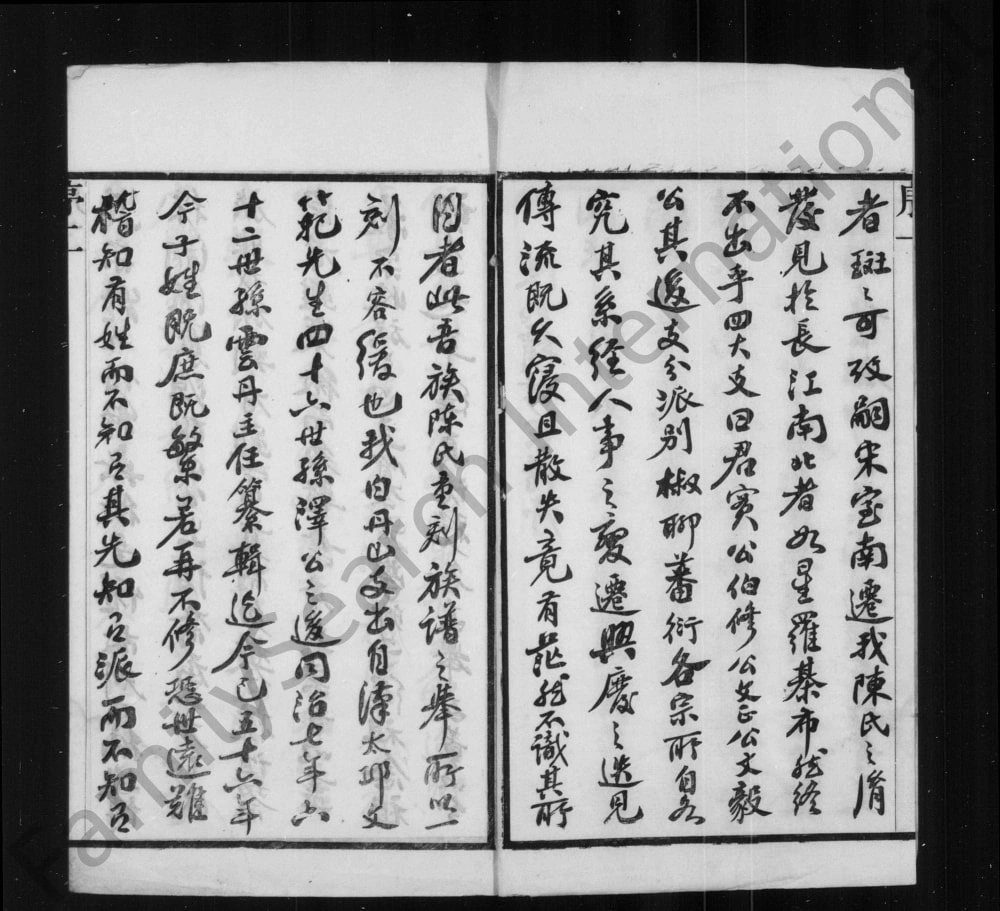 者班〻可攷嗣宋室南遷我陳氏之胤
發見於長江南北者如星羅棊布然終
不出乎四大支曰君實公伯修公文正公文毅
公其後支分派別椒聊蕃衍各宗所自各
究其系經人事之變遷興廢之迭見
傳流既久寖且散失竟有茫然不識其所
自者此吾族陈氏重刻族譜之舉所以一
刻不容緩也我白丹山支出自漢太邱文
範先生四十六世孫澤公之後同治七年六
十二世孫雲丹主任纂輯迄今已五十六年
今子姓既庶既繁若再不修恐世遠難
稽知有姓而不知吾其先知吾派而不知吾
序一
序二
FamilySearch International